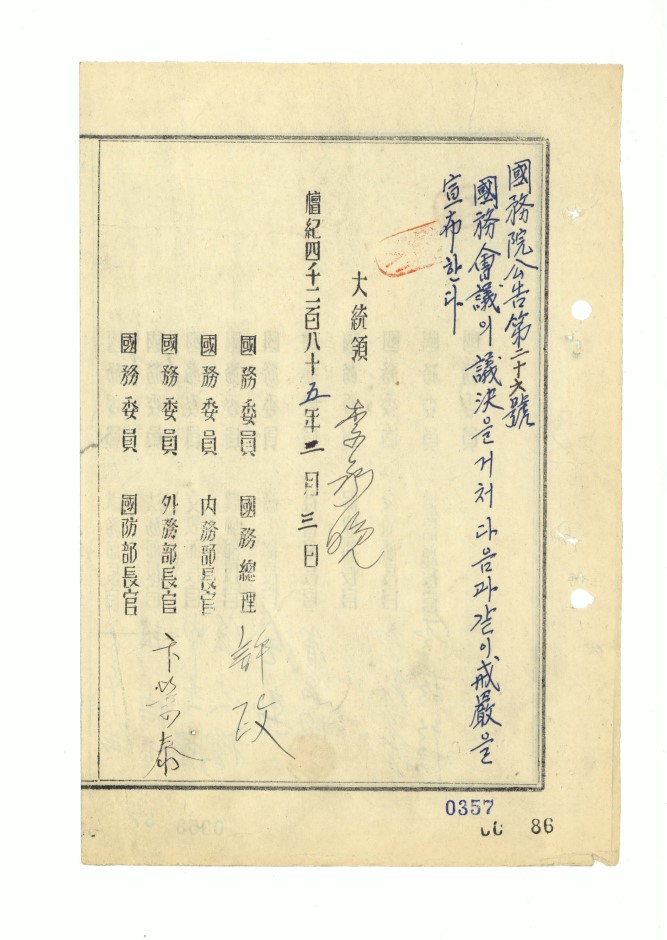 國務院公告第二十六號
國務會議의 議決을 거처 다음과 같이 戒嚴을
宣布한다
大統領 李承晩
檀紀四千二百八十五年 二月 三日
國務委員 國務總理 許政
國務委員 內務部長官
國務委員 外務部長官 卞榮泰
國務委員 國防部長官
0357
86